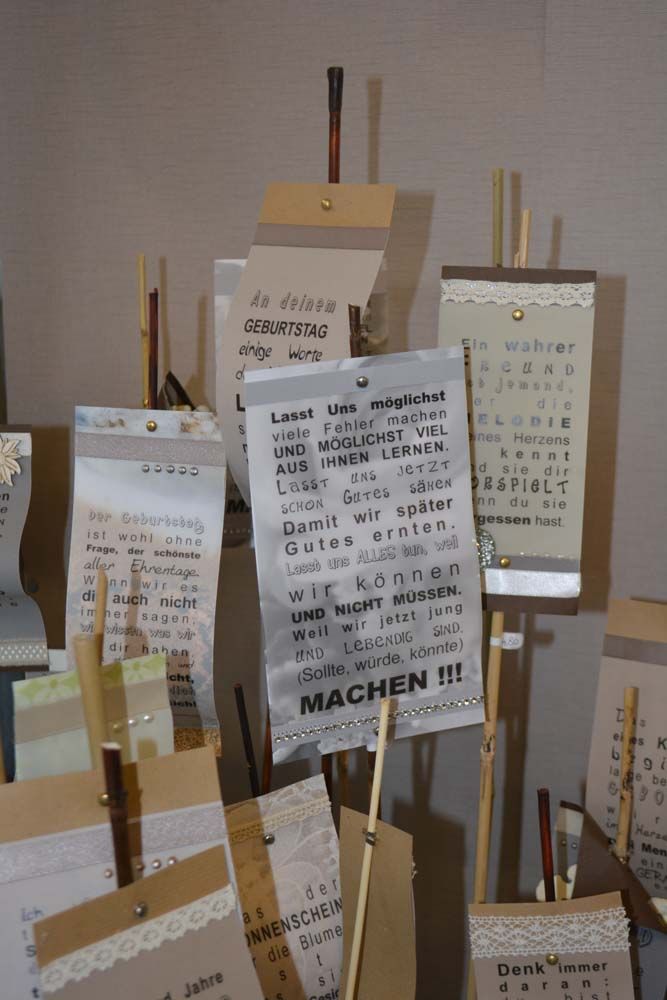 An deinem
GEBURTSTAG
einige Worte
Lasst Uns möglichst
viele Fehler machen
UND MÖGLICHST VIEL
AUS IHNEN LERNEN.
Lasst uns jetzt
schon Gutes sähen
Damit wir später
Gutes ernten.
Lasst uns ALLES tun, weil
wir können
UND NICHT MÜSSEN.
Weil wir jetzt jung
und lebendig sind.
(Sollte, würde, könnte)
MACHEN !!!
Ein wahrer
REUND
jemand,
er die
MELODIE
eines Herzens
kennt
nd sie dir
ORSPIELT
nn du sie
rgessen hast.
Der Geburtstag
ist wohl ohne
Frage, der schönste
aller Ehrentage.
Wenn wir es
dir auch nicht
immer sagen,
wir wissen was wir
dir haben.
und
icht,
80
Das
eines K
begi
Ich
as der
ONNENSCHEIN
r die Blume
s t
nd Jahre
Denk immer
daran: